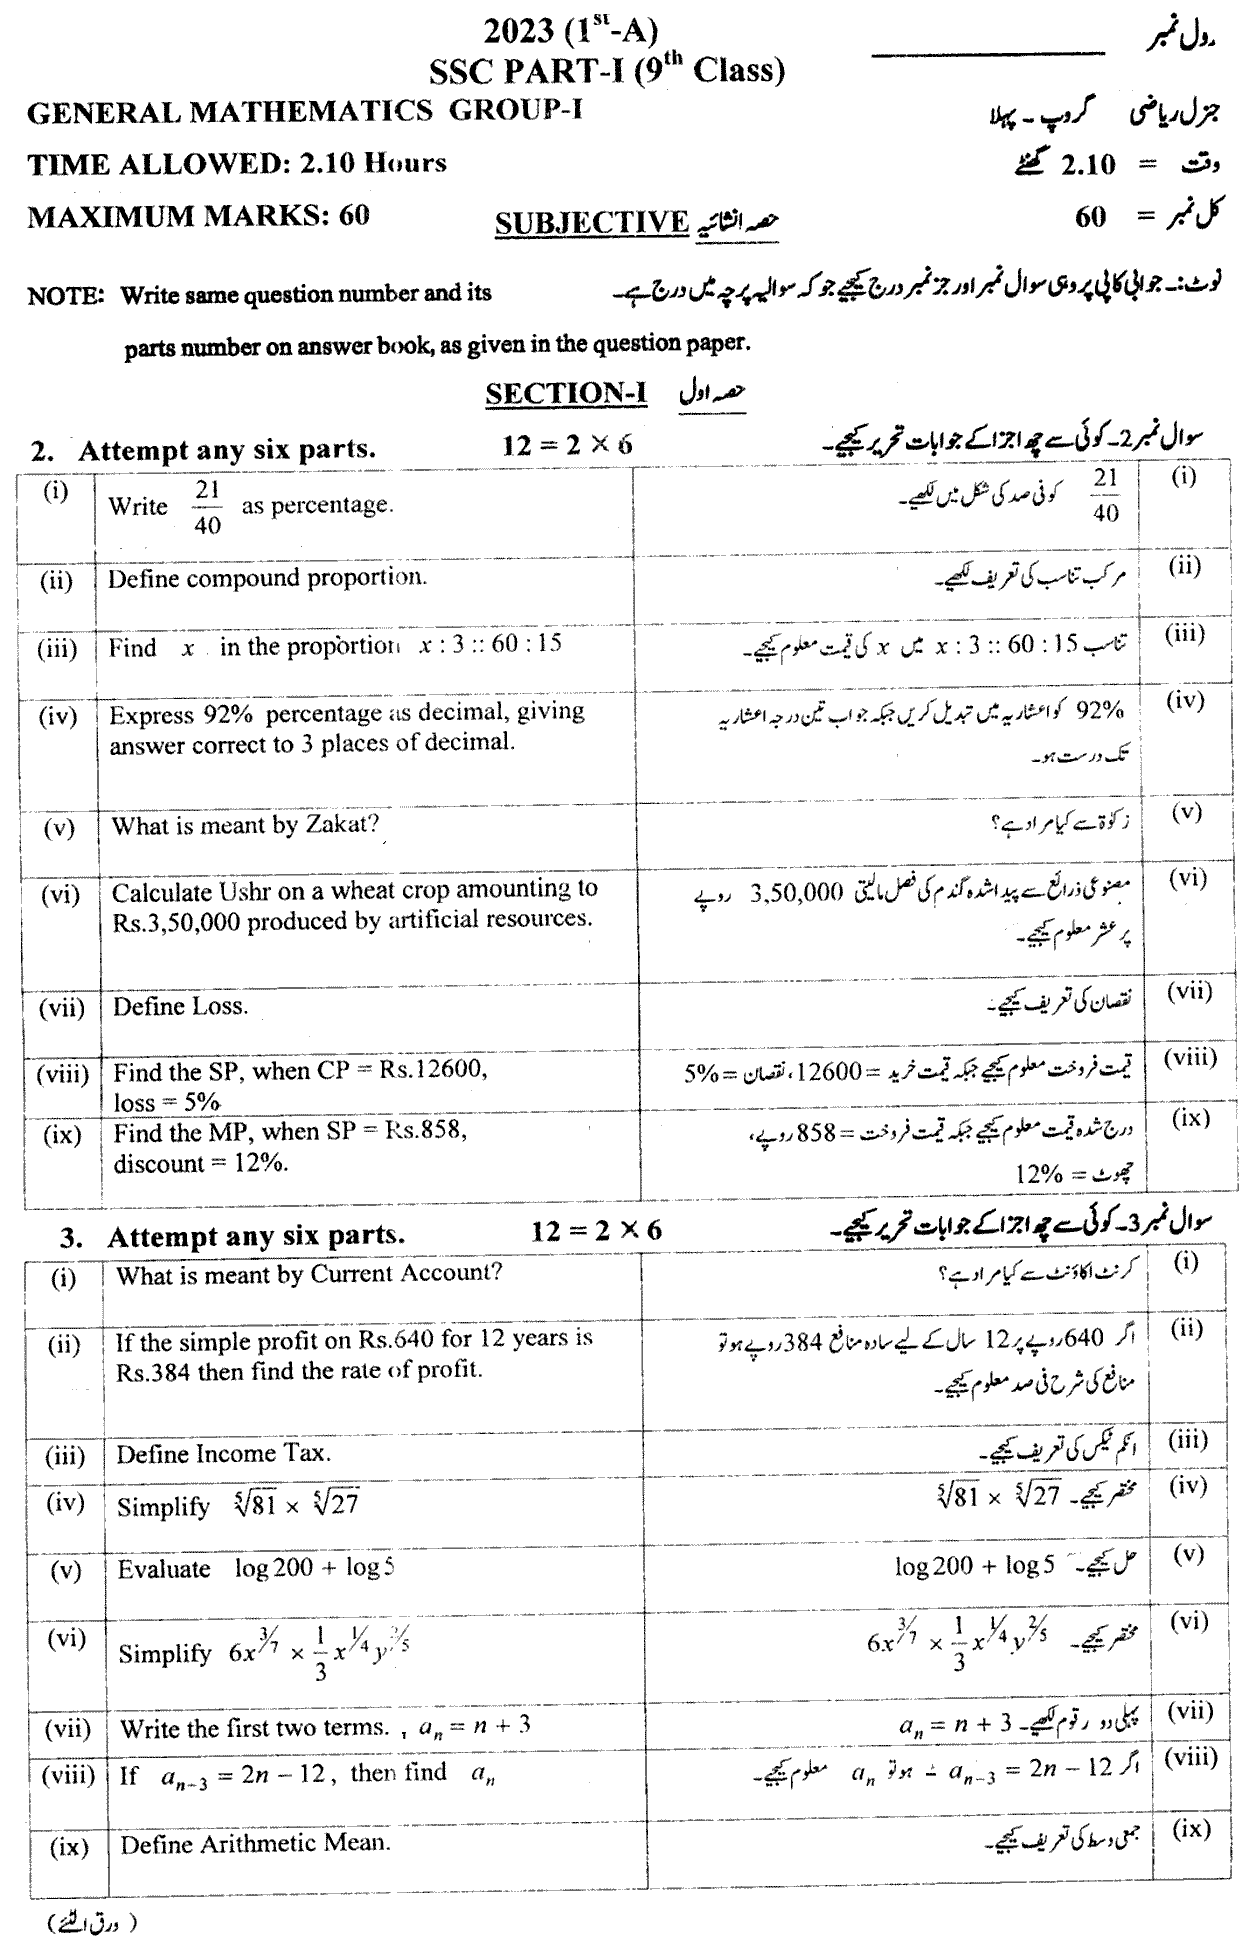 2023 (1st-A)
رول نمبر ____________
SSC PART-I (9th Class)
GENERAL MATHEMATICS GROUP-I
جنرل ریاضی گروپ ۔ پہلا
TIME ALLOWED: 2.10 Hours
وقت = 2.10 گھنٹے
MAXIMUM MARKS: 60
SUBJECTIVE حصہ انشائیہ
کل نمبر = 60
NOTE: Write same question number and its
نوٹ:۔ جوابی کاپی پر وہی سوال نمبر اور جز نمبر درج کیجیے جو کہ سوالیہ پرچہ میں درج ہے۔
parts number on answer book, as given in the question paper.
SECTION-I حصہ اول
2. Attempt any six parts. 12 = 2 × 6
سوال نمبر 2۔ کوئی سے چھ اجزا کے جوابات تحریر کیجیے۔
(i) Write 21/40 as percentage.
21/40 کو فی صد کی شکل میں لکھیے۔ (i)
(ii) Define compound proportion.
مرکب تناسب کی تعریف لکھیے۔ (ii)
(iii) Find x in the proportion x : 3 :: 60 : 15
تناسب x : 3 :: 60 : 15 میں x کی قیمت معلوم کیجیے۔ (iii)
(iv) Express 92% percentage as decimal, giving
answer correct to 3 places of decimal.
92% کو اعشاریہ میں تبدیل کریں جبکہ جواب تین درجہ اعشاریہ (iv)
تک درست ہو۔
(v) What is meant by Zakat?
زکوٰۃ سے کیا مراد ہے؟ (v)
(vi) Calculate Ushr on a wheat crop amounting to
Rs.3,50,000 produced by artificial resources.
مصنوعی ذرائع سے پیدا شدہ گندم کی فصل مالیتی 3,50,000 روپے (vi)
پر عشر معلوم کیجیے۔
(vii) Define Loss.
نقصان کی تعریف کیجیے۔ (vii)
(viii) Find the SP, when CP = Rs.12600,
loss = 5%
قیمت فروخت معلوم کیجیے جبکہ قیمت خرید = 12600، نقصان = 5% (viii)
(ix) Find the MP, when SP = Rs.858,
discount = 12%.
درج شدہ قیمت معلوم کیجیے جبکہ قیمت فروخت = 858 روپے، (ix)
چھوٹ = 12%
3. Attempt any six parts. 12 = 2 × 6
سوال نمبر 3۔ کوئی سے چھ اجزا کے جوابات تحریر کیجیے۔
(i) What is meant by Current Account?
کرنٹ اکاؤنٹ سے کیا مراد ہے؟ (i)
(ii) If the simple profit on Rs.640 for 12 years is
Rs.384 then find the rate of profit.
اگر 640 روپے پر 12 سال کے لیے سادہ منافع 384 روپے ہو تو (ii)
منافع کی شرح فی صد معلوم کیجیے۔
(iii) Define Income Tax.
انکم ٹیکس کی تعریف کیجیے۔ (iii)
(iv) Simplify ⁵√81 × ⁵√27
مختصر کیجیے۔ ⁵√81 × ⁵√27 (iv)
(v) Evaluate log 200 + log 5
حل کیجیے۔ log 200 + log 5 (v)
(vi) Simplify 6x^(3/7) × 1/3 x^(1/4) y^(2/5)
مختصر کیجیے۔ 6x^(3/7) × 1/3 x^(1/4) y^(2/5) (vi)
(vii) Write the first two terms. , aₙ = n + 3
پہلی دو رقوم لکھیے۔ aₙ = n + 3 (vii)
(viii) If aₙ₋₃ = 2n − 12, then find aₙ
اگر aₙ₋₃ = 2n − 12 ہو تو aₙ معلوم کیجیے۔ (viii)
(ix) Define Arithmetic Mean.
جمعی وسط کی تعریف کیجیے۔ (ix)
(ورق الٹئے)